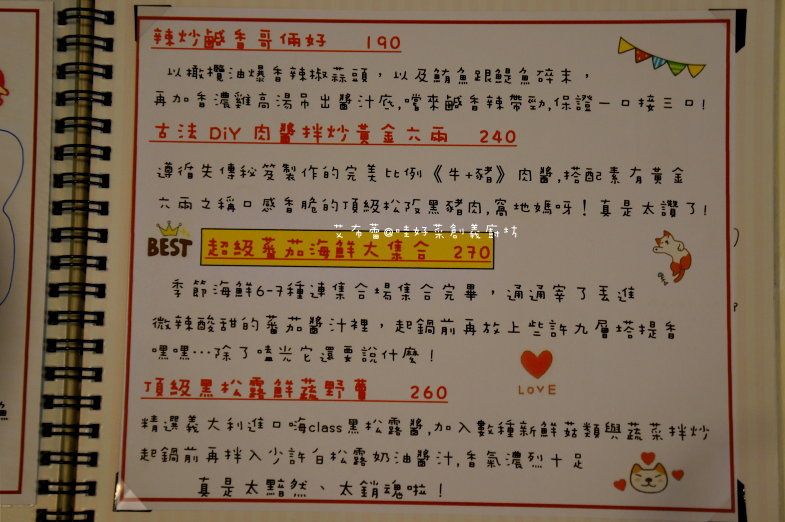 辣炒鹹香哥倆好 190
以橄欖油爆香辣椒蒜頭，以及鮪魚跟鯷魚碎末，
再加香濃雞高湯吊出醬汁底,嚐來鹹香辣帶勁,保證一口接三口!
古法DiY肉醬拌炒黃金六兩 240
遵循失傳秘笈製作的完美比例《牛+豬》肉醬,搭配素有黃金
六兩之稱口感香脆的頂級松阪黑豬肉,窩地媽呀!真是太讚了!
艾布蕾@哇好菜創義廚坊
BEST 超級蕃茄海鮮大集合 270
季節海鮮6-7種連集合場集合完畢，通通宰了丟進
微辣酸甜的蕃茄醬汁裡，起鍋前再放上些許九層塔提香
嘿嘿…除了嗑光它還要說什麼!
LOVE
頂級黑松露鮮蔬野蕈 260
精選義大利進口嗨class黑松露醬,加入數種新鮮菇類與蔬菜拌炒
起鍋前再拌入少許白松露奶油醬汁,香氣濃烈十足
真是太黯然、太銷魂啦!